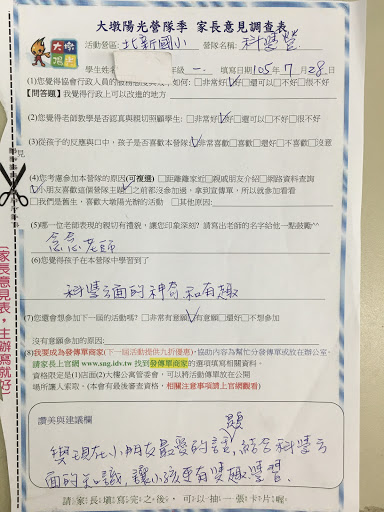 大墩陽光營隊季 家長意見調查表
大墩陽光
活動營區: 北新國小 營隊名稱: 科學營
學生姓名 年級 一. 填寫日期105年7月28日
(1)您覺得協會行政人員的服務態度與效 如何: □非常好□好□還可以□不好□很不好
【問答題】我覺得行政上可以改進的地方
(2)您覺得老師教學是否認真與親切照顧學生: □非常好□好□還可以□不好□很不好
(3)從孩子的反應與口中，孩子是否喜歡本營隊: □非常喜歡□喜歡□還好□不喜歡□沒意
見
(4)您考慮參加本營隊的原因(可複選) □距離離家近□親戚朋友介紹□網路資料查詢
□小朋友喜歡這個營隊主題□之前都沒參加過，拿到宣傳單，所以就參加看看
□我們是舊生，喜歡大墩陽光辦的活動 □其他原因:
(5)哪一位老師表現的親切有禮貌，讓您印象深刻? 請寫出老師的名字給他一點鼓勵^^
念念老師
(6)您覺得孩子在本營隊中學習到了
科學方面的神奇和有趣
(7)您還會想參加下一屆的活動嗎? □非常有意願□有意願□還好□不想參加
沒有意願參加的原因:
(8)我要成為發傳單商家(下一屆活動提供九折優惠)，協助內容為幫忙分發傳單或放在辦公室。
請家長上官網 www.sng.idv.tw 找到發傳單商家的選項填寫相關資料。
資格限定是(1)店面(2)大樓公寓管委會，可以將活動傳單放在公開
場所讓人索取。(本會有最後審查資格，相關注意事項請上官網觀看)
讚美與建議欄
題
變現在小朋友最愛的話,結合科學方
面的知識,讓小孩更有興趣學習.
請家長填寫完之後，可以抽一張卡片喔
「家長意見表，主辦寫就好」